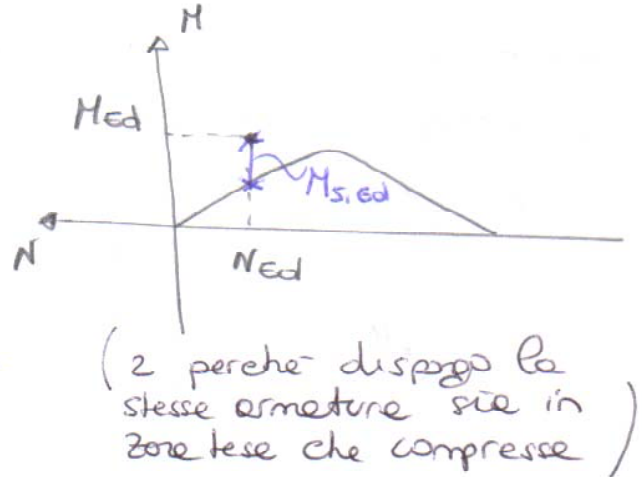 M
MEd
Ms,Ed
N
NEd
(2 perché dispongo la
stesse armature sia in
zone tese che compresse)